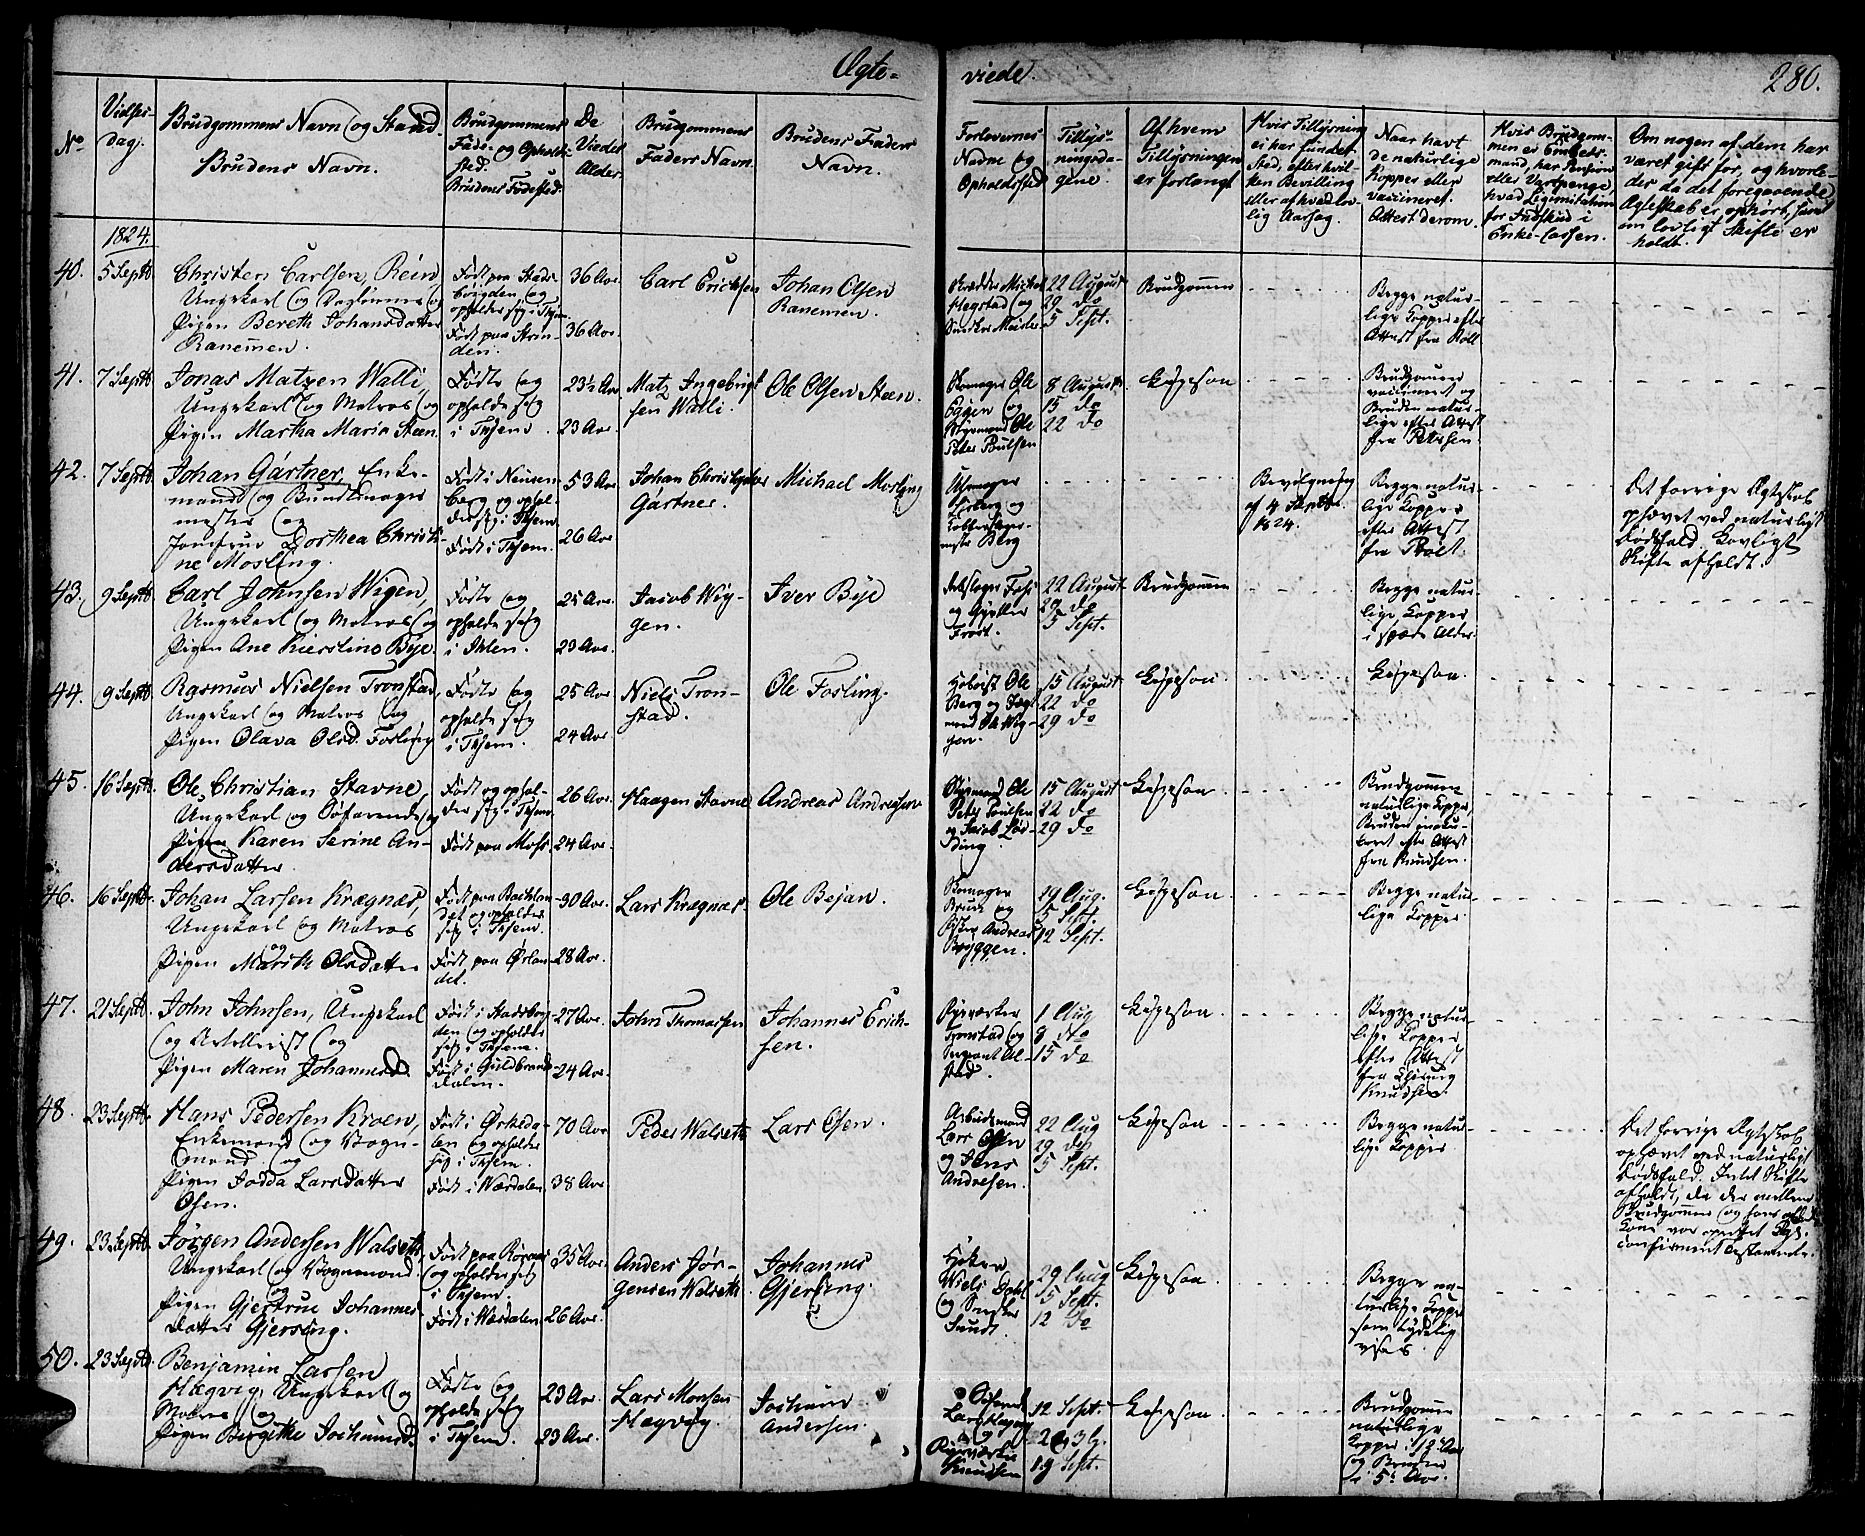 Ægte-
viede.
280.
No
Vielses-
dag.
Brudgommens Navn og Stand.
Brudens Navn.
Brudgommens
Føde- og Opholds-
sted.
Brudens Fødested.
De
Viedes
Alder.
Brudgommens
Faders Navn.
Brudens Faders
Navn.
Forlovernes
Navne og
Opholdssted
Tillys-
ningsda-
gene
Af hvem
Tillysningen
er forlangt
Hvis Tillysning
ei har fundet
Sted, efter hvil-
ken Bevilling
eller af hvad lov-
lig Aarsag.
Naar havt
de naturlige
Kopper eller
vaccineret.
Attest derom.
Hvis Brudgom-
men er
mand, har Pension
eller Vartpenge,
hvad Legimitation
for Indskud i
Enke-Cassen.
Om nogen af dem har
været gift før, og hvorle-
des da det foregaaende
Ægteskab er ophørt, samt
om lovligt Skifte er
holdt.
1824.
40.
5 Septb
Christen Carlsen Rein,
Ungekarl og Dagleiner og
Pigen Bereth Johansdatter
Ranemen.
Født paa Stads-
bøigden og
opholder sig i Thjem.
Født paa Strin-
den.
36 Aar.
36 Aar.
Carl Erichsen
Johan Olsen
Ranemen.
Skrædder Michel
Hegstad og
22 August
29 do
5 Sept.
Brudgommen
Begge natur-
lige Kopper efter
Attest fra Röll
41.
7 Septb
Jonas Matzen Walli,
Ungekarl og Matros og
Pigen Martha Maria Steen
Fødte og
opholde sig
i Thjem.
23½ Aar
23 Aar.
Matz Ingebrigt-
sen Walli.
Ole Olsen Steen.
Skomager Ole
Eggen og
Styrmand Ole
Peter Poulsen
8 August
15 do
22 do
Ligeson
Brudgommen
vaccineret og
Bruden natur-
lige efter Attest
fra Petersen.
42.
7 Septb
Johan Gärtner, Enke-
mand og Bundtmager
mester og
Jomfrue Dorthea Christi-
ne Mosling.
Født i Neusen-
berg og ophol-
der sig i Thjem
Født i Thjem.
53 Aar
26 Aar
Johan Christopher
Gärtner.
Michael Mosling
Berg
Bevilgning
af 4 Septbr
1824.
Begge natur-
lige Kopper
efter Attest
fra Röll
Det forrige Ægteskab
ophævet ved naturligt
Dødsfald. Lovligt
Skifte afholdt.
43.
9 Septb
Carl Johnsen Wigen,
Ungekarl og Matros og
Pigen Ane Kierstine Bye.
Fødte og
opholde sig
i Ihlen.
25 Aar.
23 Aar.
Jacob Wig-
gen.
Iver Bye
22 August
29 do
5 Sept.
Brudgommen
Begge natur-
lige Kopper
i spæde Alder.
44.
9 Septb
Rasmus Nielsen Tronstad,
Ungekarl og Matros og
Pigen Olava Olsd. Fosling
Fødte og
opholde sig
i Thjem.
25 Aar
24 Aar
Niels Tron-
stad.
Ole Fosling.
Ole
Berg og
Wig-
gen.
15 August
22 do
29 do
Ligeson
Ligeson.
45.
16 Septb.
Ole Christian Stavne,
Ungekarl og Søfarende og
Pigen Karen Serine An-
dersdatter
Født og ophol-
der sig i Thjem
Født paa Moss.
26 Aar.
24 Aar.
Haagen Stavne
Andreas Andersen
Styrmand Ole
Peter Poulsen
og Jacob
15 August
22 do
29 do
Ligeson
Brudgommen
naturlige Kopper,
Bruden
efter Attest
fra Knudsen.
46.
16 Septb.
Johan Larsen Krægnæs,
Ungekarl og Matros
og
Pigen Marith Olsdatter
Født paa Bachlan-
det og opholder
sig i Thjem.
Født paa Ørlan-
det.
30 Aar.
28 Aar.
Lars Krægnæs
Ole Bejan.
Skomager
Brun og
Andreas
Bryggen.
19 Aug.
5 Sept.
12 Sept.
Ligeson
Begge natur-
lige Kopper.
47.
21 Septb.
John Johnsen, Ungekarl
og Artellerist og
Pigen Maren Johannesd.
Født i Stadsbøj-
den og opholder
sig i Thjem.
Født i Guldbrands-
dalen.
27 Aar.
24 Aar.
John Thomassen
Johannes Erich-
sen.
Tronstad og
Sergeant Al-
stad.
1 Aug
8 do
15 do
Ligeson
Begge natur-
lige Kopper
efter Attest
fra Chirurg
Knudsen.
48.
23 Septb.
Hans Pedersen Kroen,
Enkemand og Vogn-
mand og
Pigen Jodda Larsdatter
Osen.
Født i Ørkeda-
len og opholder
sig i Thjem.
Født i Værdalen
70 Aar
38 Aar
Peder Walseth
Lars Osen.
Arbeidsmand
Lars Osen
og Jens
Andresen.
22 Aug
29 do
5 Sept.
Ligeson
Begge natur-
lige Kopper
Det forrige Ægteskab
ophævet ved naturligt
Dødsfald. Intet Skifte
afholdt, da der mellem
Brudgommen og hans afdøde
Kone var oprettet Kgl.
confirmeret Testamente.
49.
23 Septb.
Jørgen Andersen Walseth
Ungekarl og Vognmand
og
Pigen Gjertrue Johannes-
datter Gjersing.
Født paa Røraas
og opholder sig
i Thjem.
Født i Værdalen
35 Aar.
26 Aar.
Anders Jør-
gensen Walseth
Johannes
Gjersing.
Høker
Niels Dahl
og Snedker
Sundt.
29 Aug
5 Sept.
12 do
Ligeson
Begge na-
turlige Kopper
som tydelig
vises.
50.
23 Septb.
Benjamin Larsen
Hægvig, Ungekarl og
Matros og
Pigen Bergithe Jochumsd.
Fødte og
opholde sig
i Thjem.
23 Aar.
23 Aar.
Lars Monsen
Hægvig.
Jochum
Andersen.
Lars Hægvig
og
Knudsen
12 Sept.
19 Sept.
Ligeson
Brudgommen
naturlige
Kopper i 12 Aar
og Bruden
i 5 Aar.